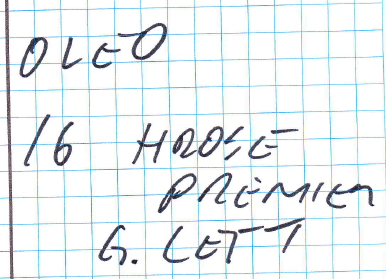 OLEO
16 HROSE
PREMIER
G. LETT